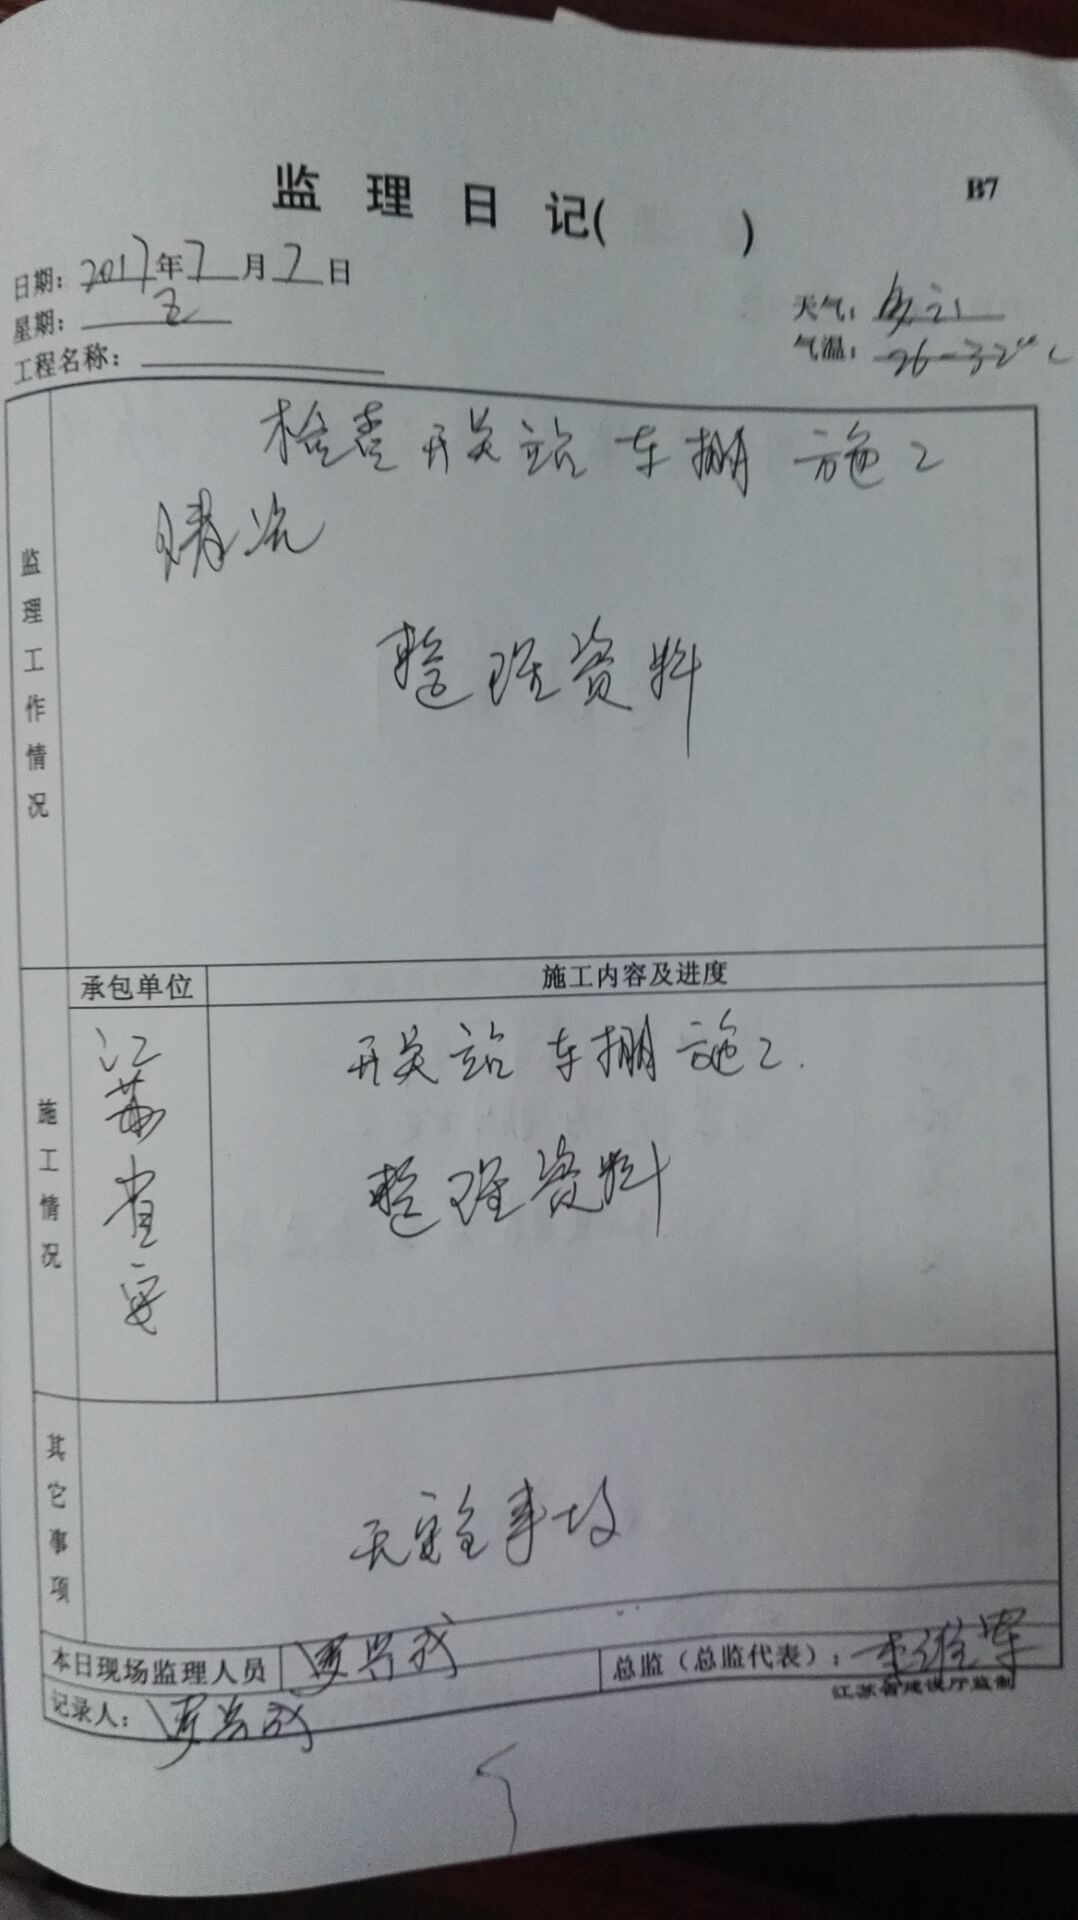 监理日记(          )
B7
日期：2017年7月7日
星期：五
工程名称：
天气：多云
气温：26-32℃
监理工作情况
检查开关站车棚施工
情况
整理资料
承包单位
施工内容及进度
施工情况
江苏省安
开关站车棚施工.
整理资料
其它事项
无安全事故
本日现场监理人员
总监（总监代表）：
江苏省建设厅监制
记录人：